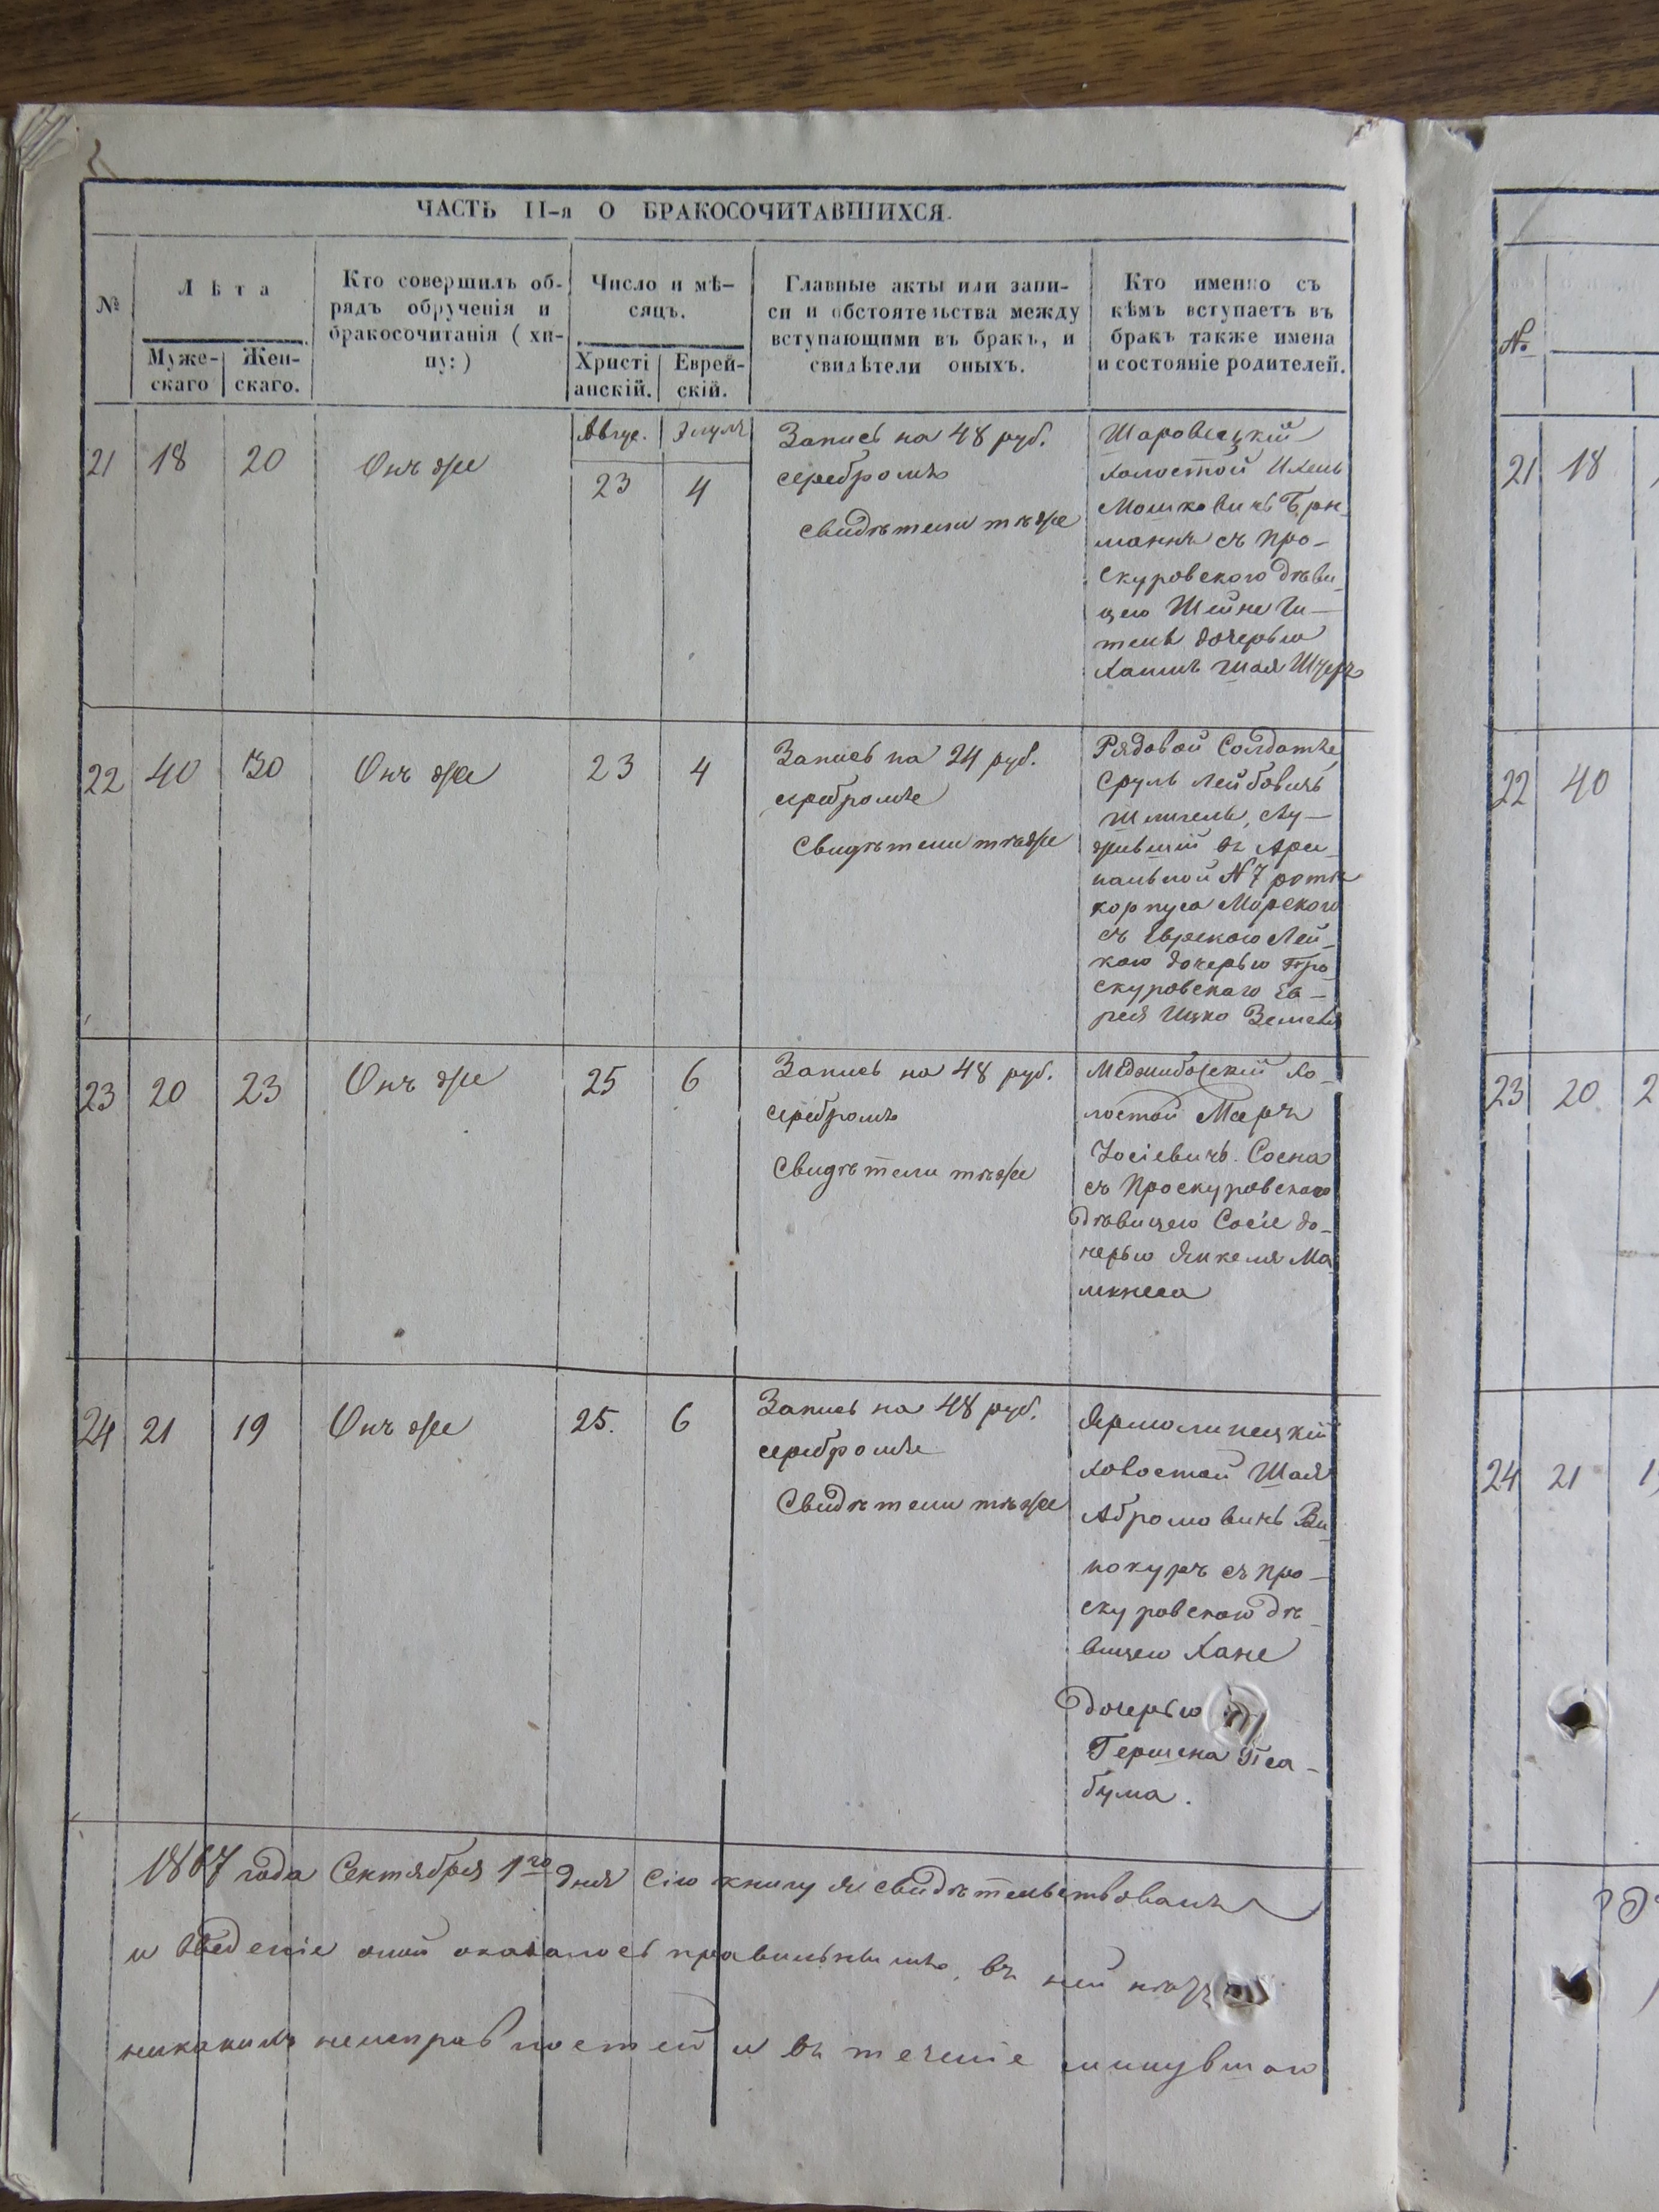 ЧАСТЬ II-я О БРАКОСОЧИТАВШИХСЯ.
№
Лѣта
Муже-
скаго
Жен-
скаго.
Кто совершилъ об-
рядъ обрученія и
бракосочитанія ( хи-
пу: )
Число и мѣ-
сяцъ.
Христі
анскій.
Еврей-
скій.
Главные акты или запи-
си и обстоятельства между
вступающими въ бракъ, и
свидѣтели оныхъ.
Кто именно съ
кѣмъ вступаетъ въ
бракъ также имена
и состояніе родителей.
21
18
20
Онъ же
Авгус.
23
Элуля
4
Запись на 48 руб.
серебромъ
свидѣтели тѣже
Шаровецкій
холостой
Мошковичъ
съ Про-
скуровскою дѣви
цею Шейне Ги-
тель дочерью
Хаимъ Шая
22
40
30
Онъ же
23
4
Запись на 24 руб.
серебромъ
Свидѣтели тѣже
Рядовой Солдатъ
Сруль Лейбовичъ
слу-
жившій въ Арсе
нальной № 7 ротѣ
корпуса Морскаго
съ Еврейкою Лей-
кою дочерью Про
скуровскаго Ев-
рея Ицко
23
20
23
Онъ же
25
6
Запись на 48 руб.
серебромъ
Свидѣтели тѣже
Меджибожскій хо-
лостой Мееръ
Іосіевичъ Сосна
съ Проскуровскою
дѣвицею Сосіе до-
черью Янкеля
24
21
19
Онъ же
25.
6
Запись на 48 руб.
серебромъ
Свидѣтели тѣже
Ярмолинецкій
холостой Шая
Абрамовичъ Ви
нокуръ съ Про-
скуровскою дѣ
вицею Хане
дочерью
Гершена
1867 года Сентября 1го дня сію книгу я свидѣтельствовалъ
и введеніе оной оказалось правильнымъ, въ ней нѣтъ
никакихъ неисправностей и въ теченіе минувшаго
№
21
18
22
40
23
20
2
24
21